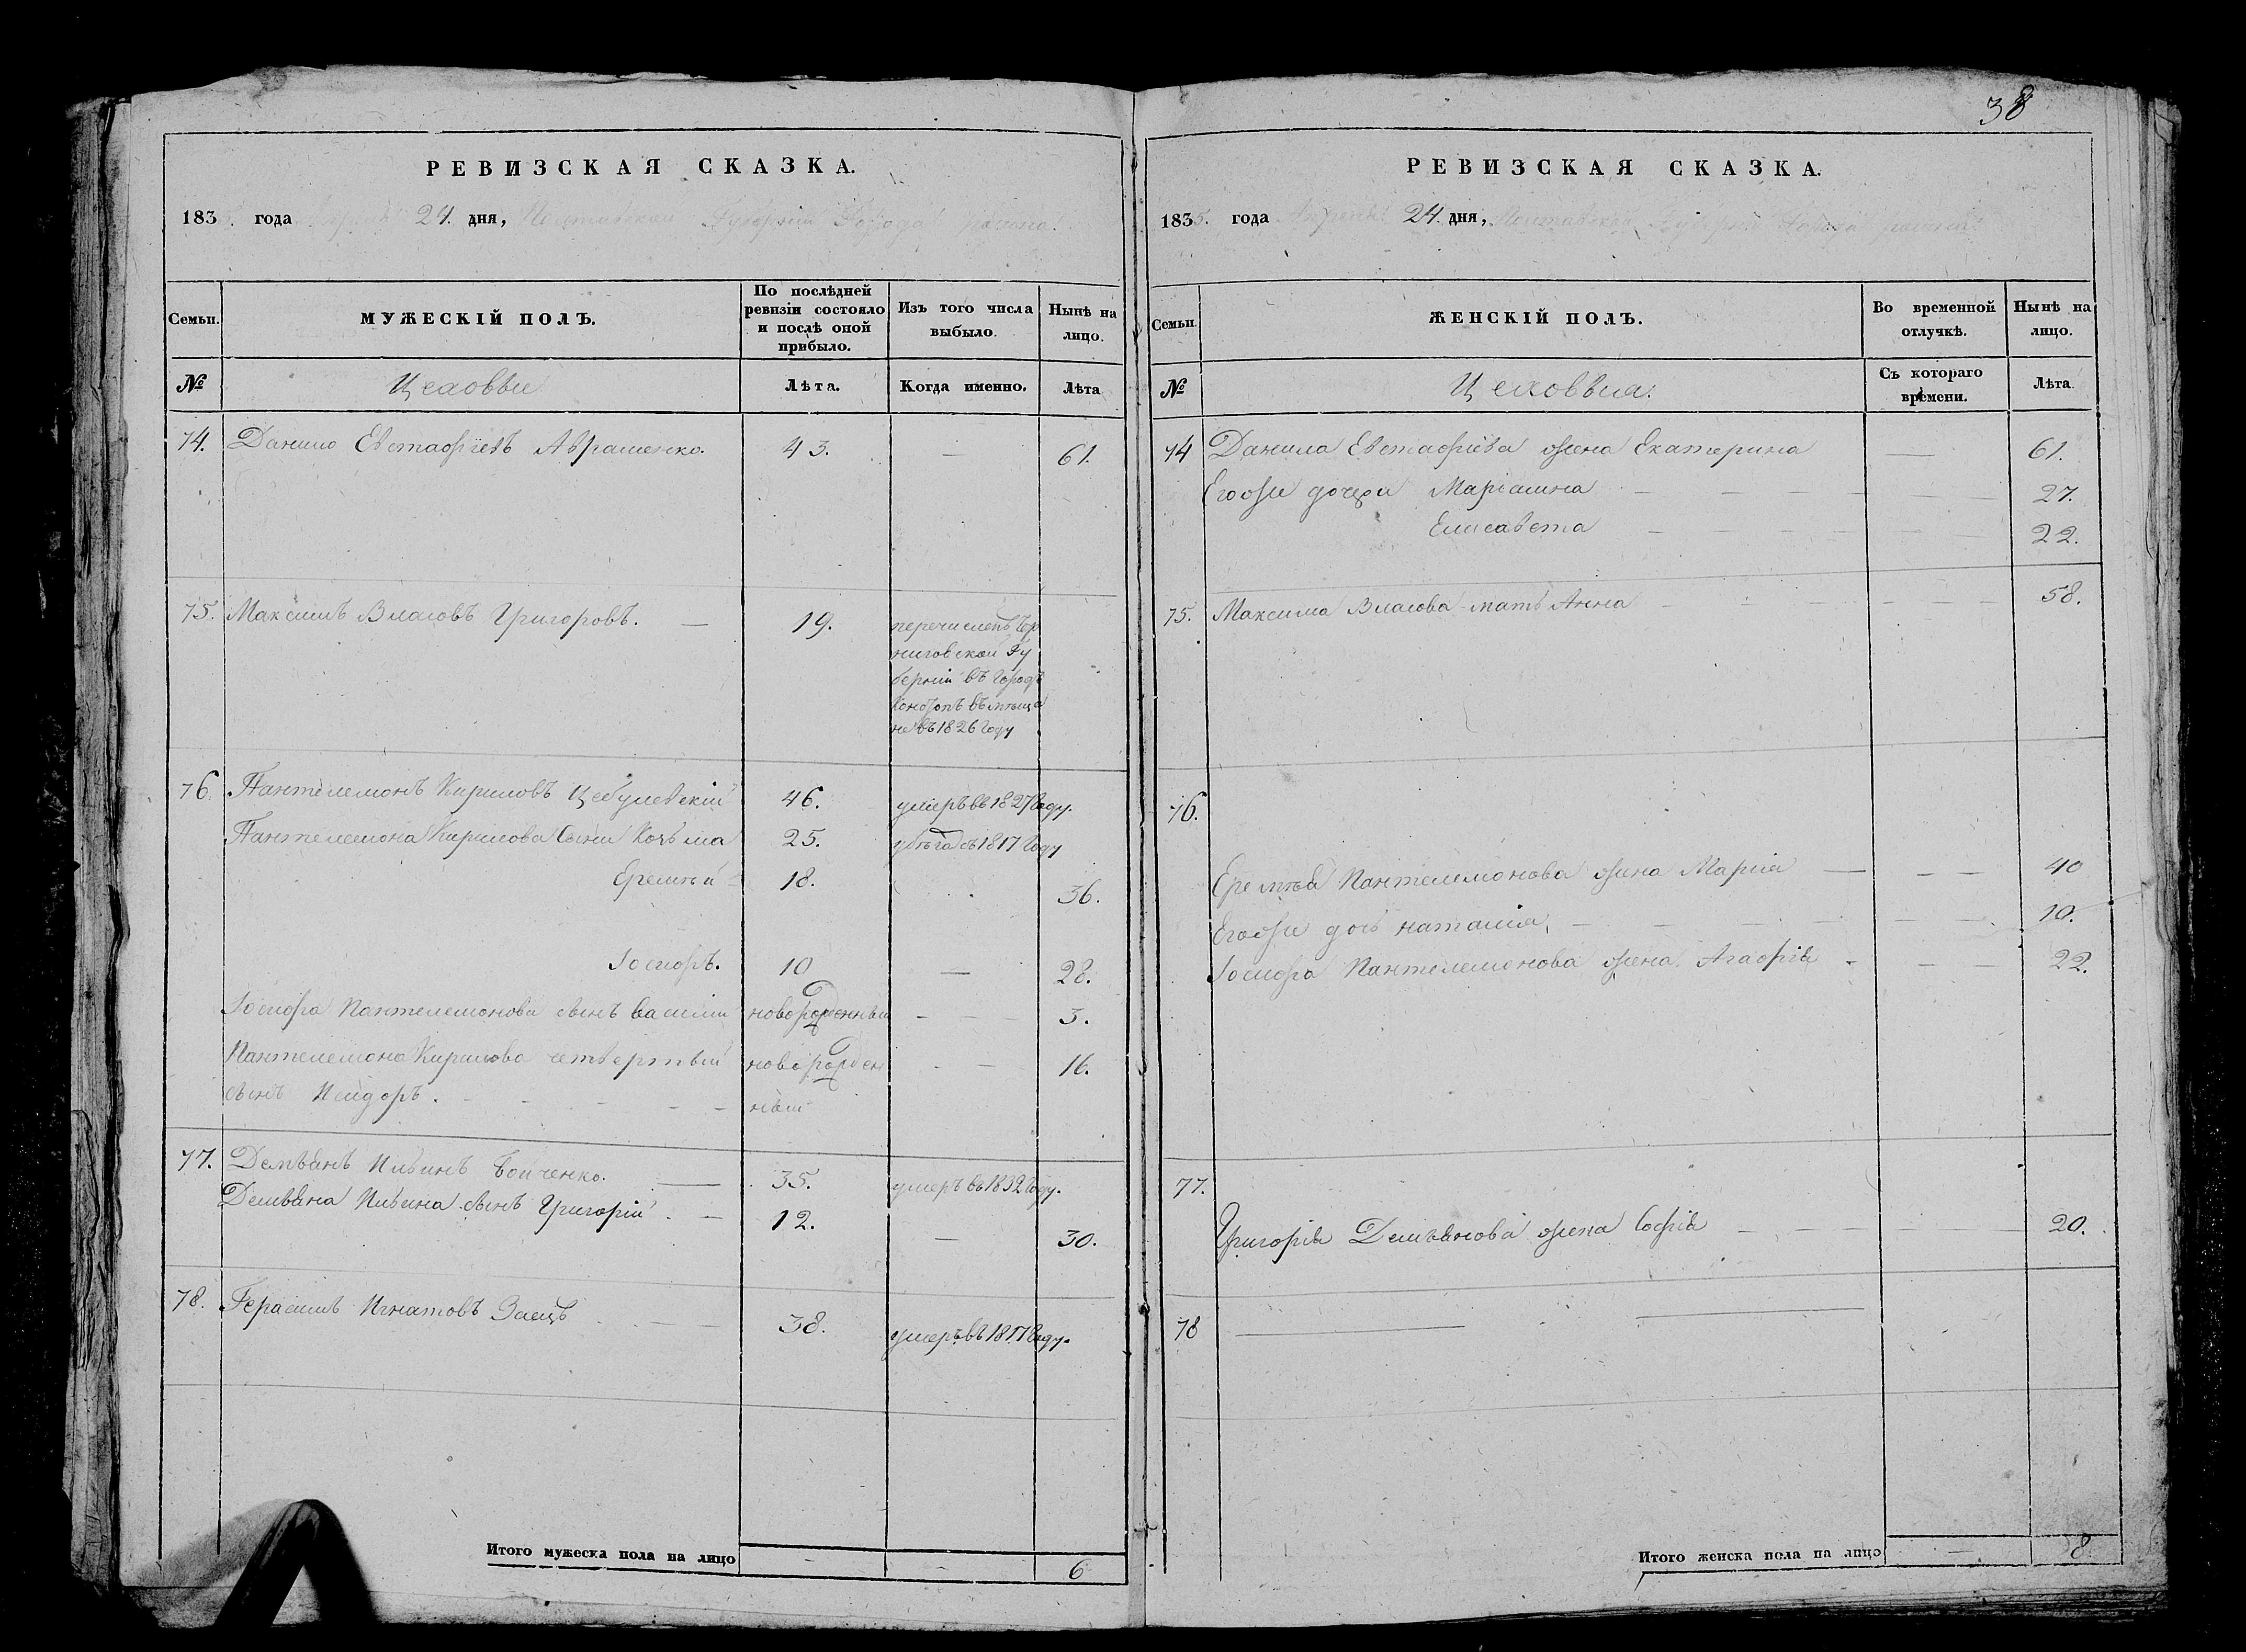 38
РЕВИЗСКАЯ СКАЗКА.
183 . года 24. дня, Полтавской Губерніи Города Ромна.
Семьи. МУЖЕСКІЙ ПОЛЪ. По послѣдней ревизіи состояло и послѣ оной прибыло. Изъ того числа выбыло. Нынѣ на лицо.
№ Цеховыи Лѣта. Когда именно. Лѣта
74. Данило Евстафіевъ Аврашенко. 43. — 61.
75. Максимъ Власовъ Григоровъ. — 19. перечисленъ Чер
ниговской Гу
берніи въ Городъ
Конотопъ въ мѣща
не въ 1826 Году
76. Пантелемонъ Кириловъ Цебулевскій 46. умеръ въ 1827 Году.
Пантелемона Кирилова сыни Козьма 25. убѣга въ 1817 Году
Еремѣй 18. 36.
Іосифъ. 10 — 28.
Іосифа Пантелемонова сынъ Василій новорожденный — — 3.
Пантелемона Кирилова четвертый новорожден — 16.
сынъ Исидоръ. — — — — ный
77. Демьянъ Ильинъ Бойченко. — 35. умеръ въ 1832 Году.
Демьяна Ильина сынъ Григорій — 12. — 30.
78. Герасимъ Игнатовъ Заецъ — — 38. умеръ въ 1817 Году.
Итого мужеска пола на лицо — — 6
РЕВИЗСКАЯ СКАЗКА.
1835. года Апрѣля 24. дня, Полтавской Губерніи Города Ромна
Семьи. ЖЕНСКІЙ ПОЛЪ. Во временной отлучкѣ. Нынѣ на лицо.
№ Цеховыя. Съ котораго времени. Лѣта.
74 Данила Евстафіева жена Екатерина — 61.
Его же дочери Маріамна — — — — 27.
Елисавета — — — — 22.
75. Максима Власова мать Анна — — — — 58.
76.
Еремѣя Пантелемонова жена Марія — — — 40
Его же дочь наталія, — — — — 10.
Іосифа Пантелемонова жена Агафія — — — 22.
77.
Григорія Демьянова жена Софія — — — — 20.
78 — —
Итого женска пола на лицо — 8.